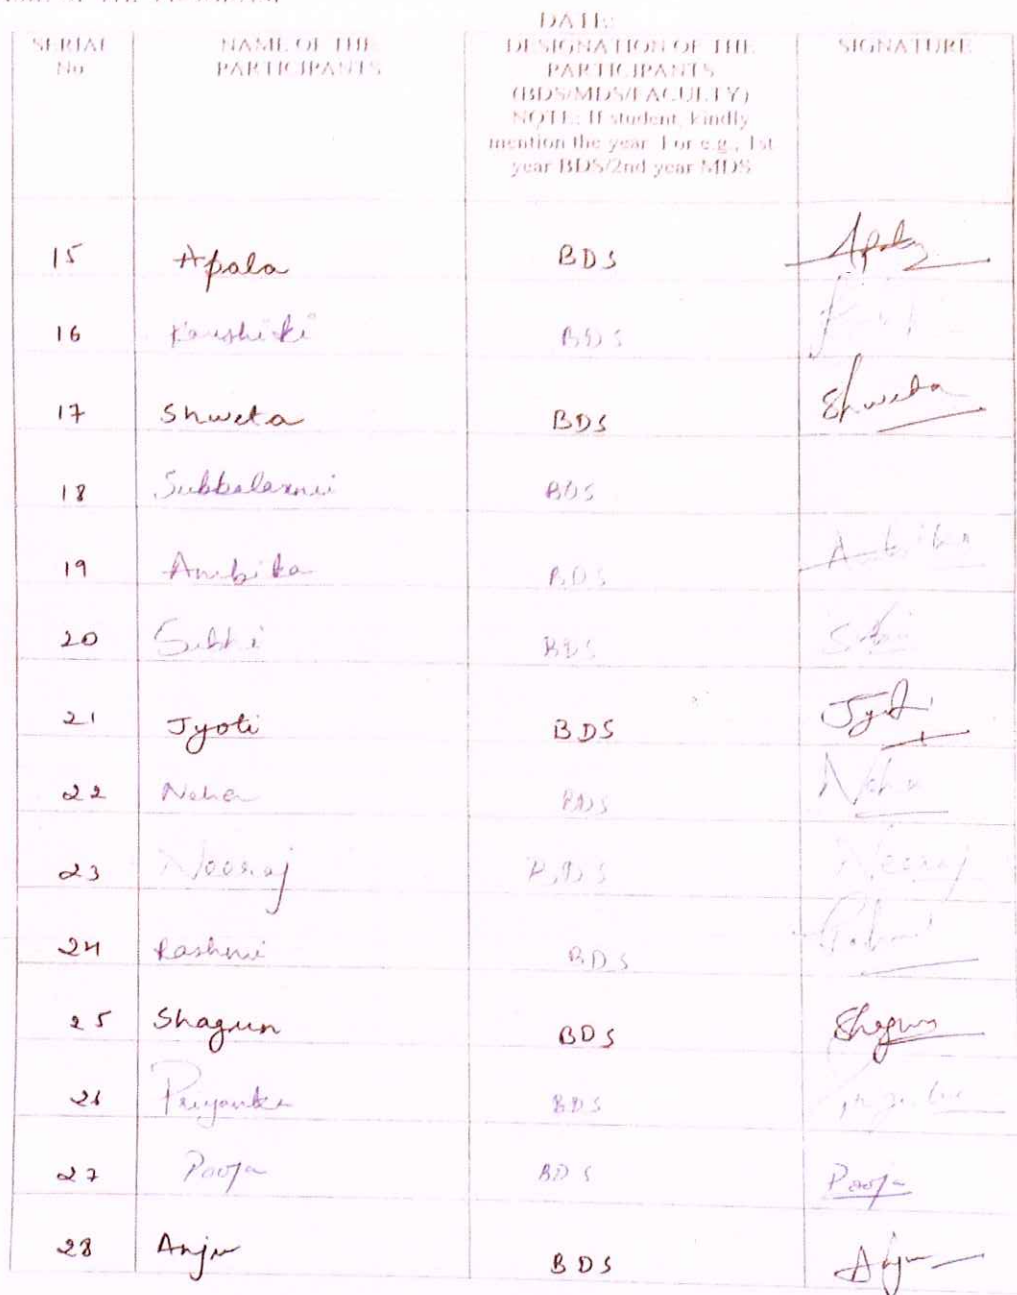 DATE:
SERIAL No
NAME OF THE PARTICIPANTS
DESIGNATION OF THE PARTICIPANTS
(BDS/MDS/FACULTY)
NOTE: If student, kindly
mention the year. For e.g., 1st
year BDS/2nd year MDS
SIGNATURE
15 Apala BDS Apala
16 Kaushiki BDS
17 Shweta BDS Shweta
18 Subbalaxmi BDS
19 Ambika BDS Ambika
20 BDS
21 Jyoti BDS Jyoti
22 Neha BDS Neha
23 Neeraj BDS Neeraj
24 Rashmi BDS
25 Shagun BDS Shagun
26 Priyanka BDS Priyanka
27 Pooja BDS Pooja
28 Anju BDS Anju